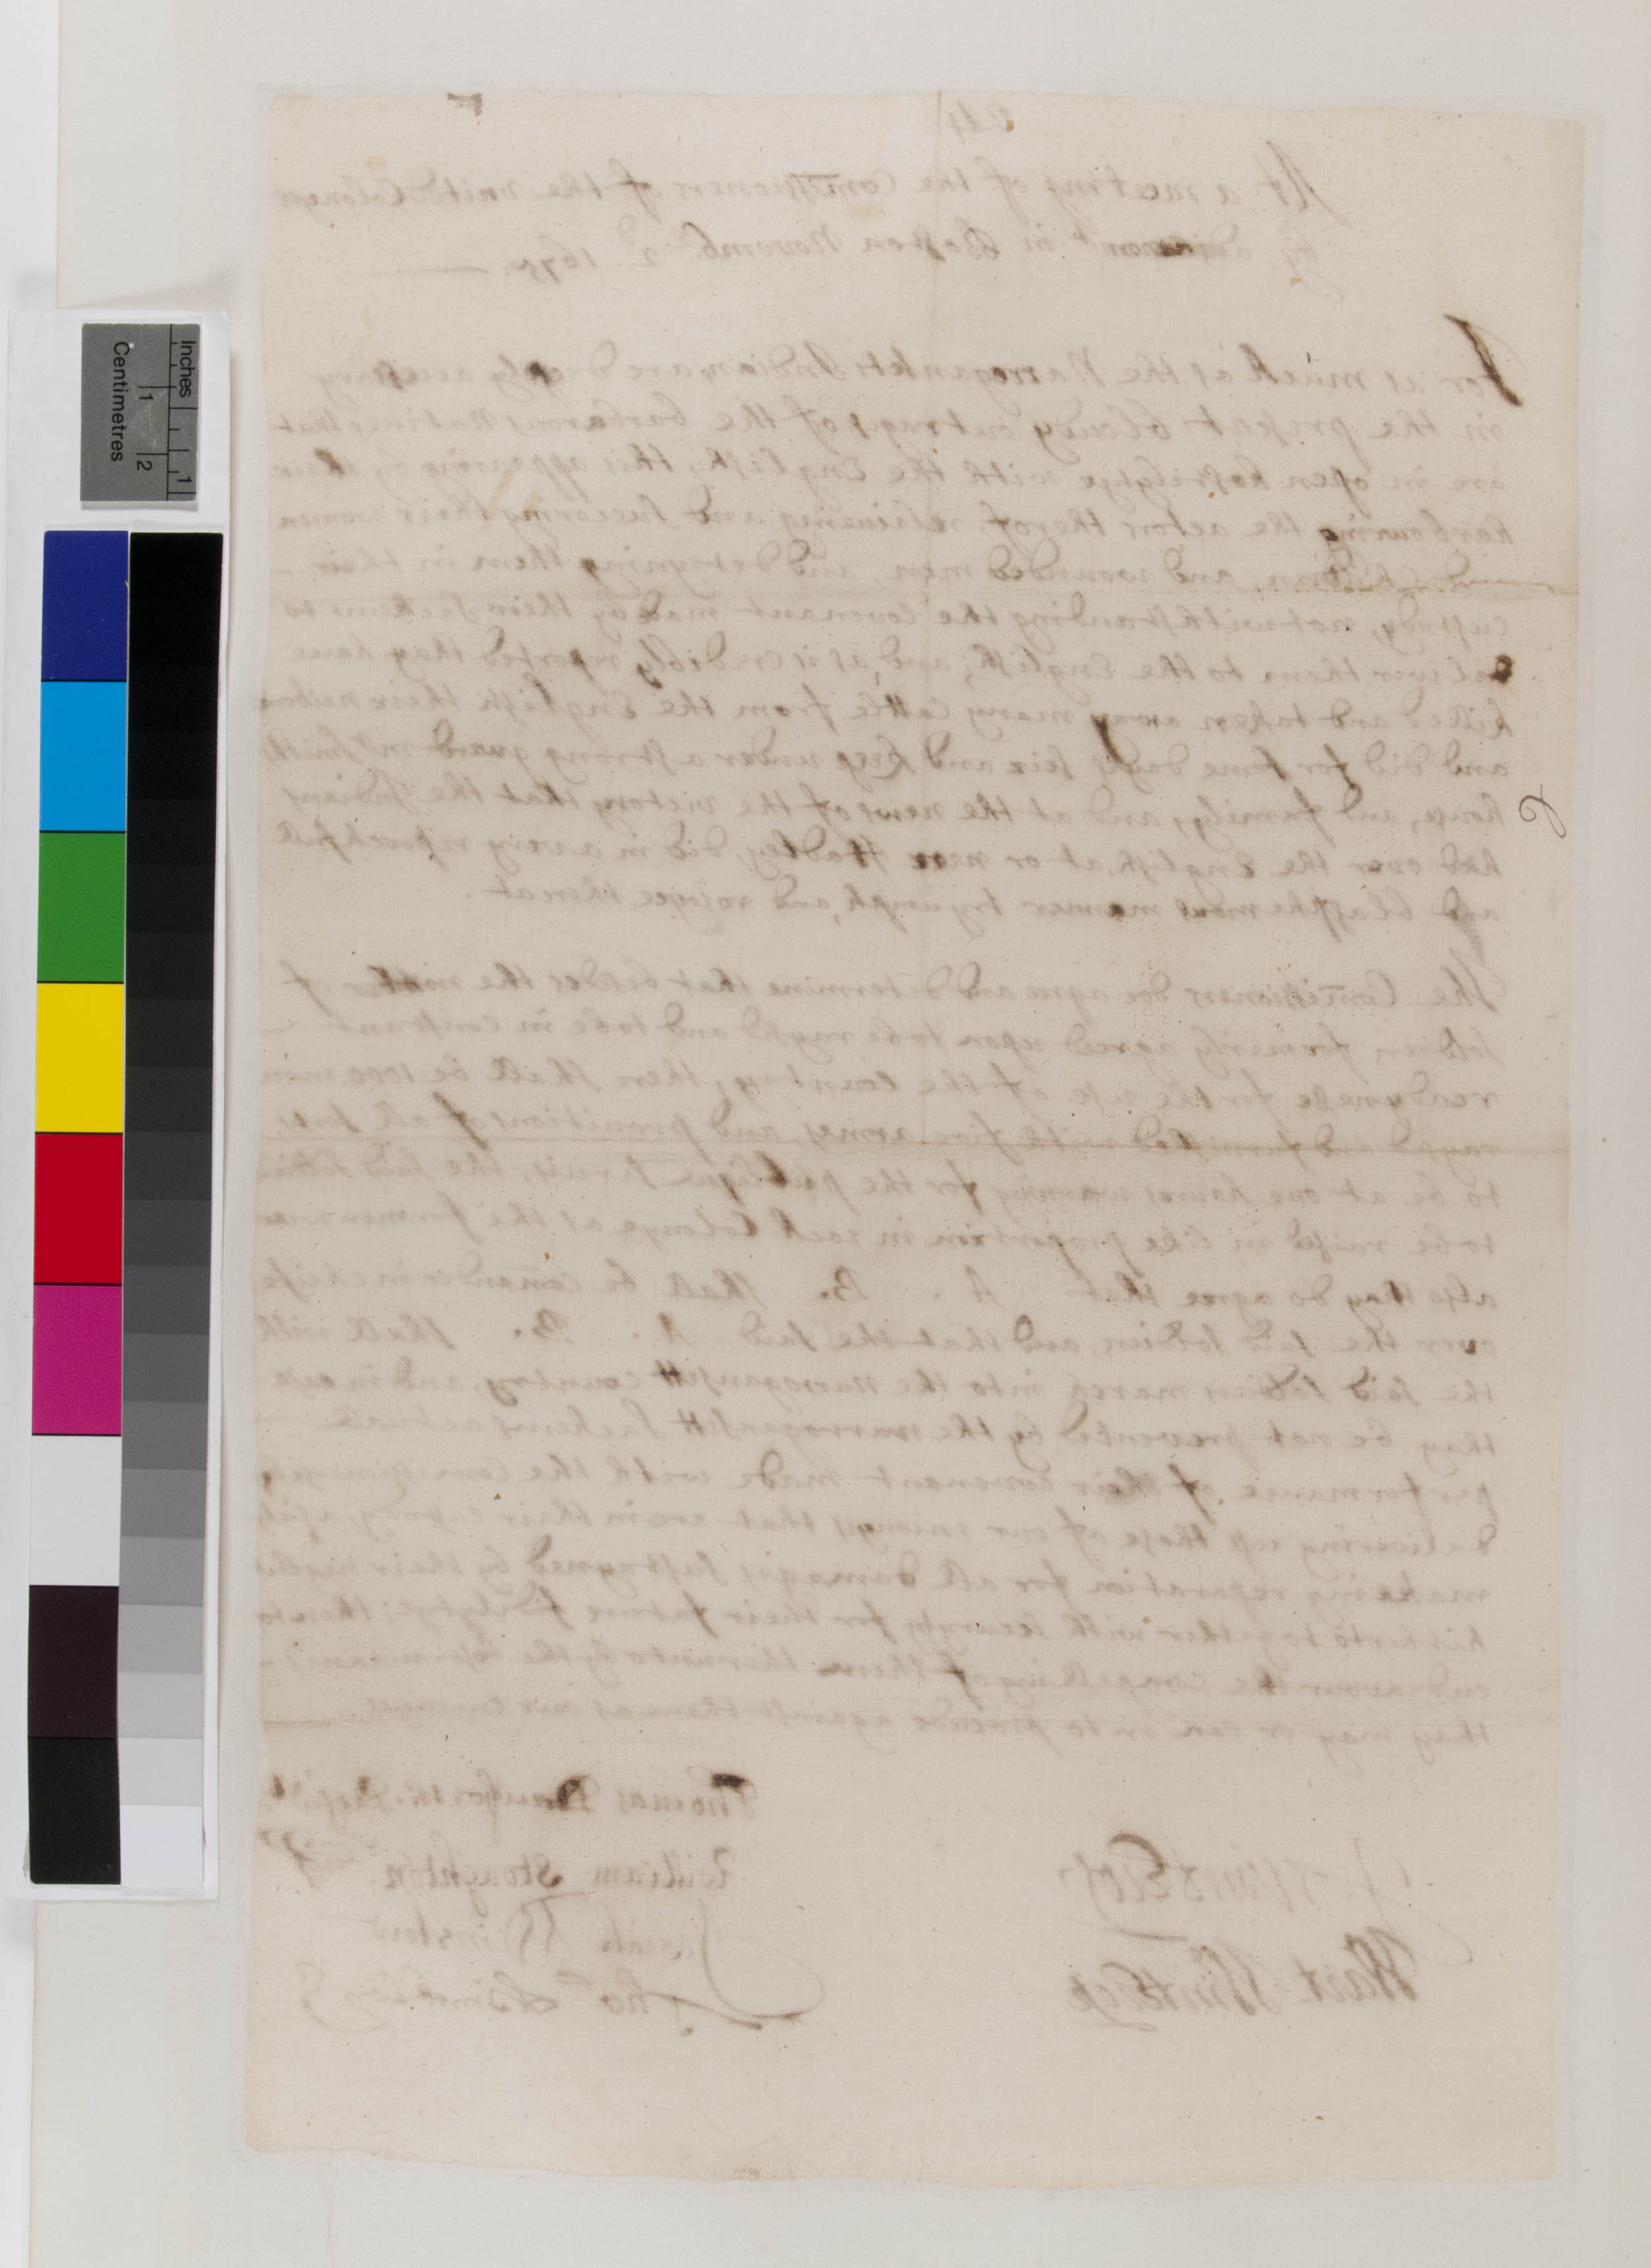 Inches
1
Centimetres
1
2
24
At a meeting of the Comissioners of the united Colonyes
by adjournmt in Boston Novemb. 2d 1675.
For as much as the Narrogansets Indians are deeply accessary
in the present bloudy outrages of the barbarous natives that
are in open hostilytye with the English, this appearing by their
harbouring the actors therof, relieueing and succoring their women
and children, and wounded men, and detayning them in their
custody, notwithstanding the Covenant made by their sachems to
deliver them to the English; and as is credibly reported they have
killed and taken away many Cattle from the English their neibors
and did for some dayes seiz and keep under a strong guard mr Smiths
house, and family, and at the news of the victory that the Indians
had over the English, at or near Hadley, did in a very reprochfull
and blasphemous manner tryumph, and rejoyce thereat.
The Comissioners doe agree and determine that besides the number of
soldiers formerly agreed upon to be raysed and to be in constant
readynesse for the use of the Country; their shall be 1000 more
raysed and furnished with fire armes, and provitions of all sorts,
to be at one houres warning for the publique service, the said soldiers
to be raised in like proportion in each Colonye as the former were
also they do agree that A. B. shall be comander in cheife
over the said soldiers, and that the said A. B. shall with
the said soldiers march into the narrogansett country, and in case
they be not prevented by the narrogansett sachems actuall
performance of their covenant made with the Comissioners, by
delivering up those of our enimyes that are in their custody, as also
makeing reparation for all damages sustayned by their neglect
hitherto together with securyty for their future fidelytye; then to
endeavour the compelling of them therunto by the best meanes
they may or can or to proceede against them as our enemyes
Thomas Danforth Presidt
William Stoughton
Josiah Winslow
Tho: Hinckley
J. Winthrop
Wait Winthrop